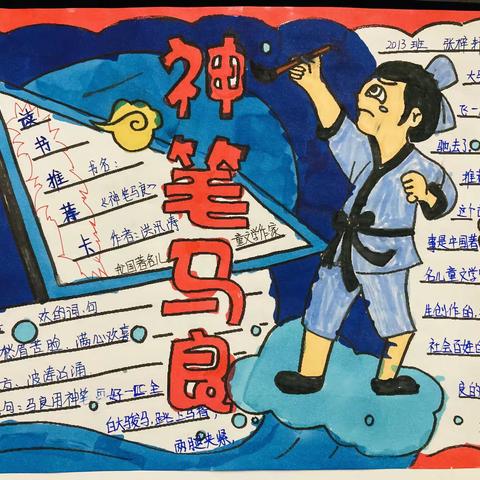 神笔马良
读书推荐卡
书名：
《神笔马良》
作者：洪汛涛
中国著名儿童文学作家
欢的词、句
愁眉苦脸 满心欢喜
方：波涛汹涌
句：马良用神笔画好一匹全
白大骏马，跳上马背，
两腿夹紧
2013班 张梓
大马
飞一
驰去了
推荐
这个
事是中国著
名儿童文学
生创作的
社会百姓
良的